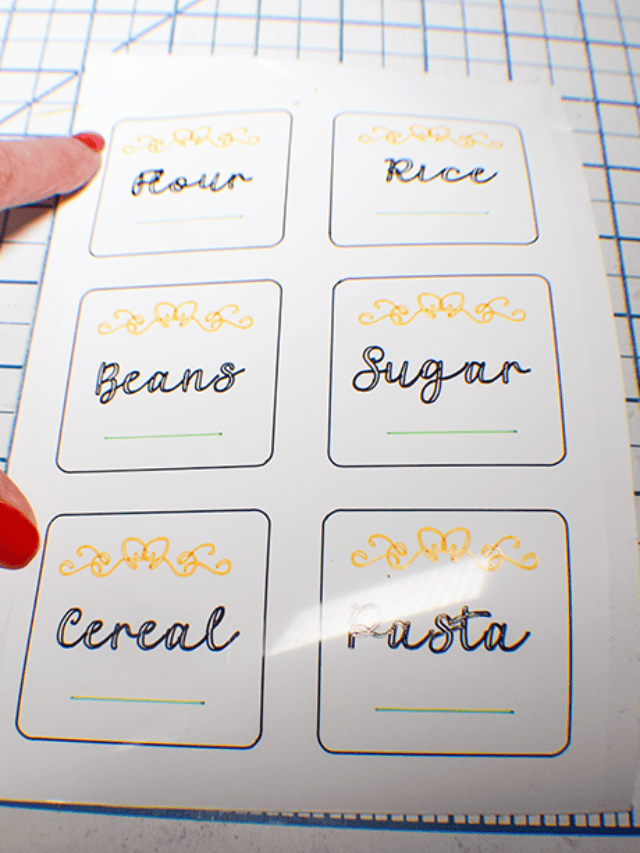 Flour
Rice
Beans
Sugar
Cereal
Pasta